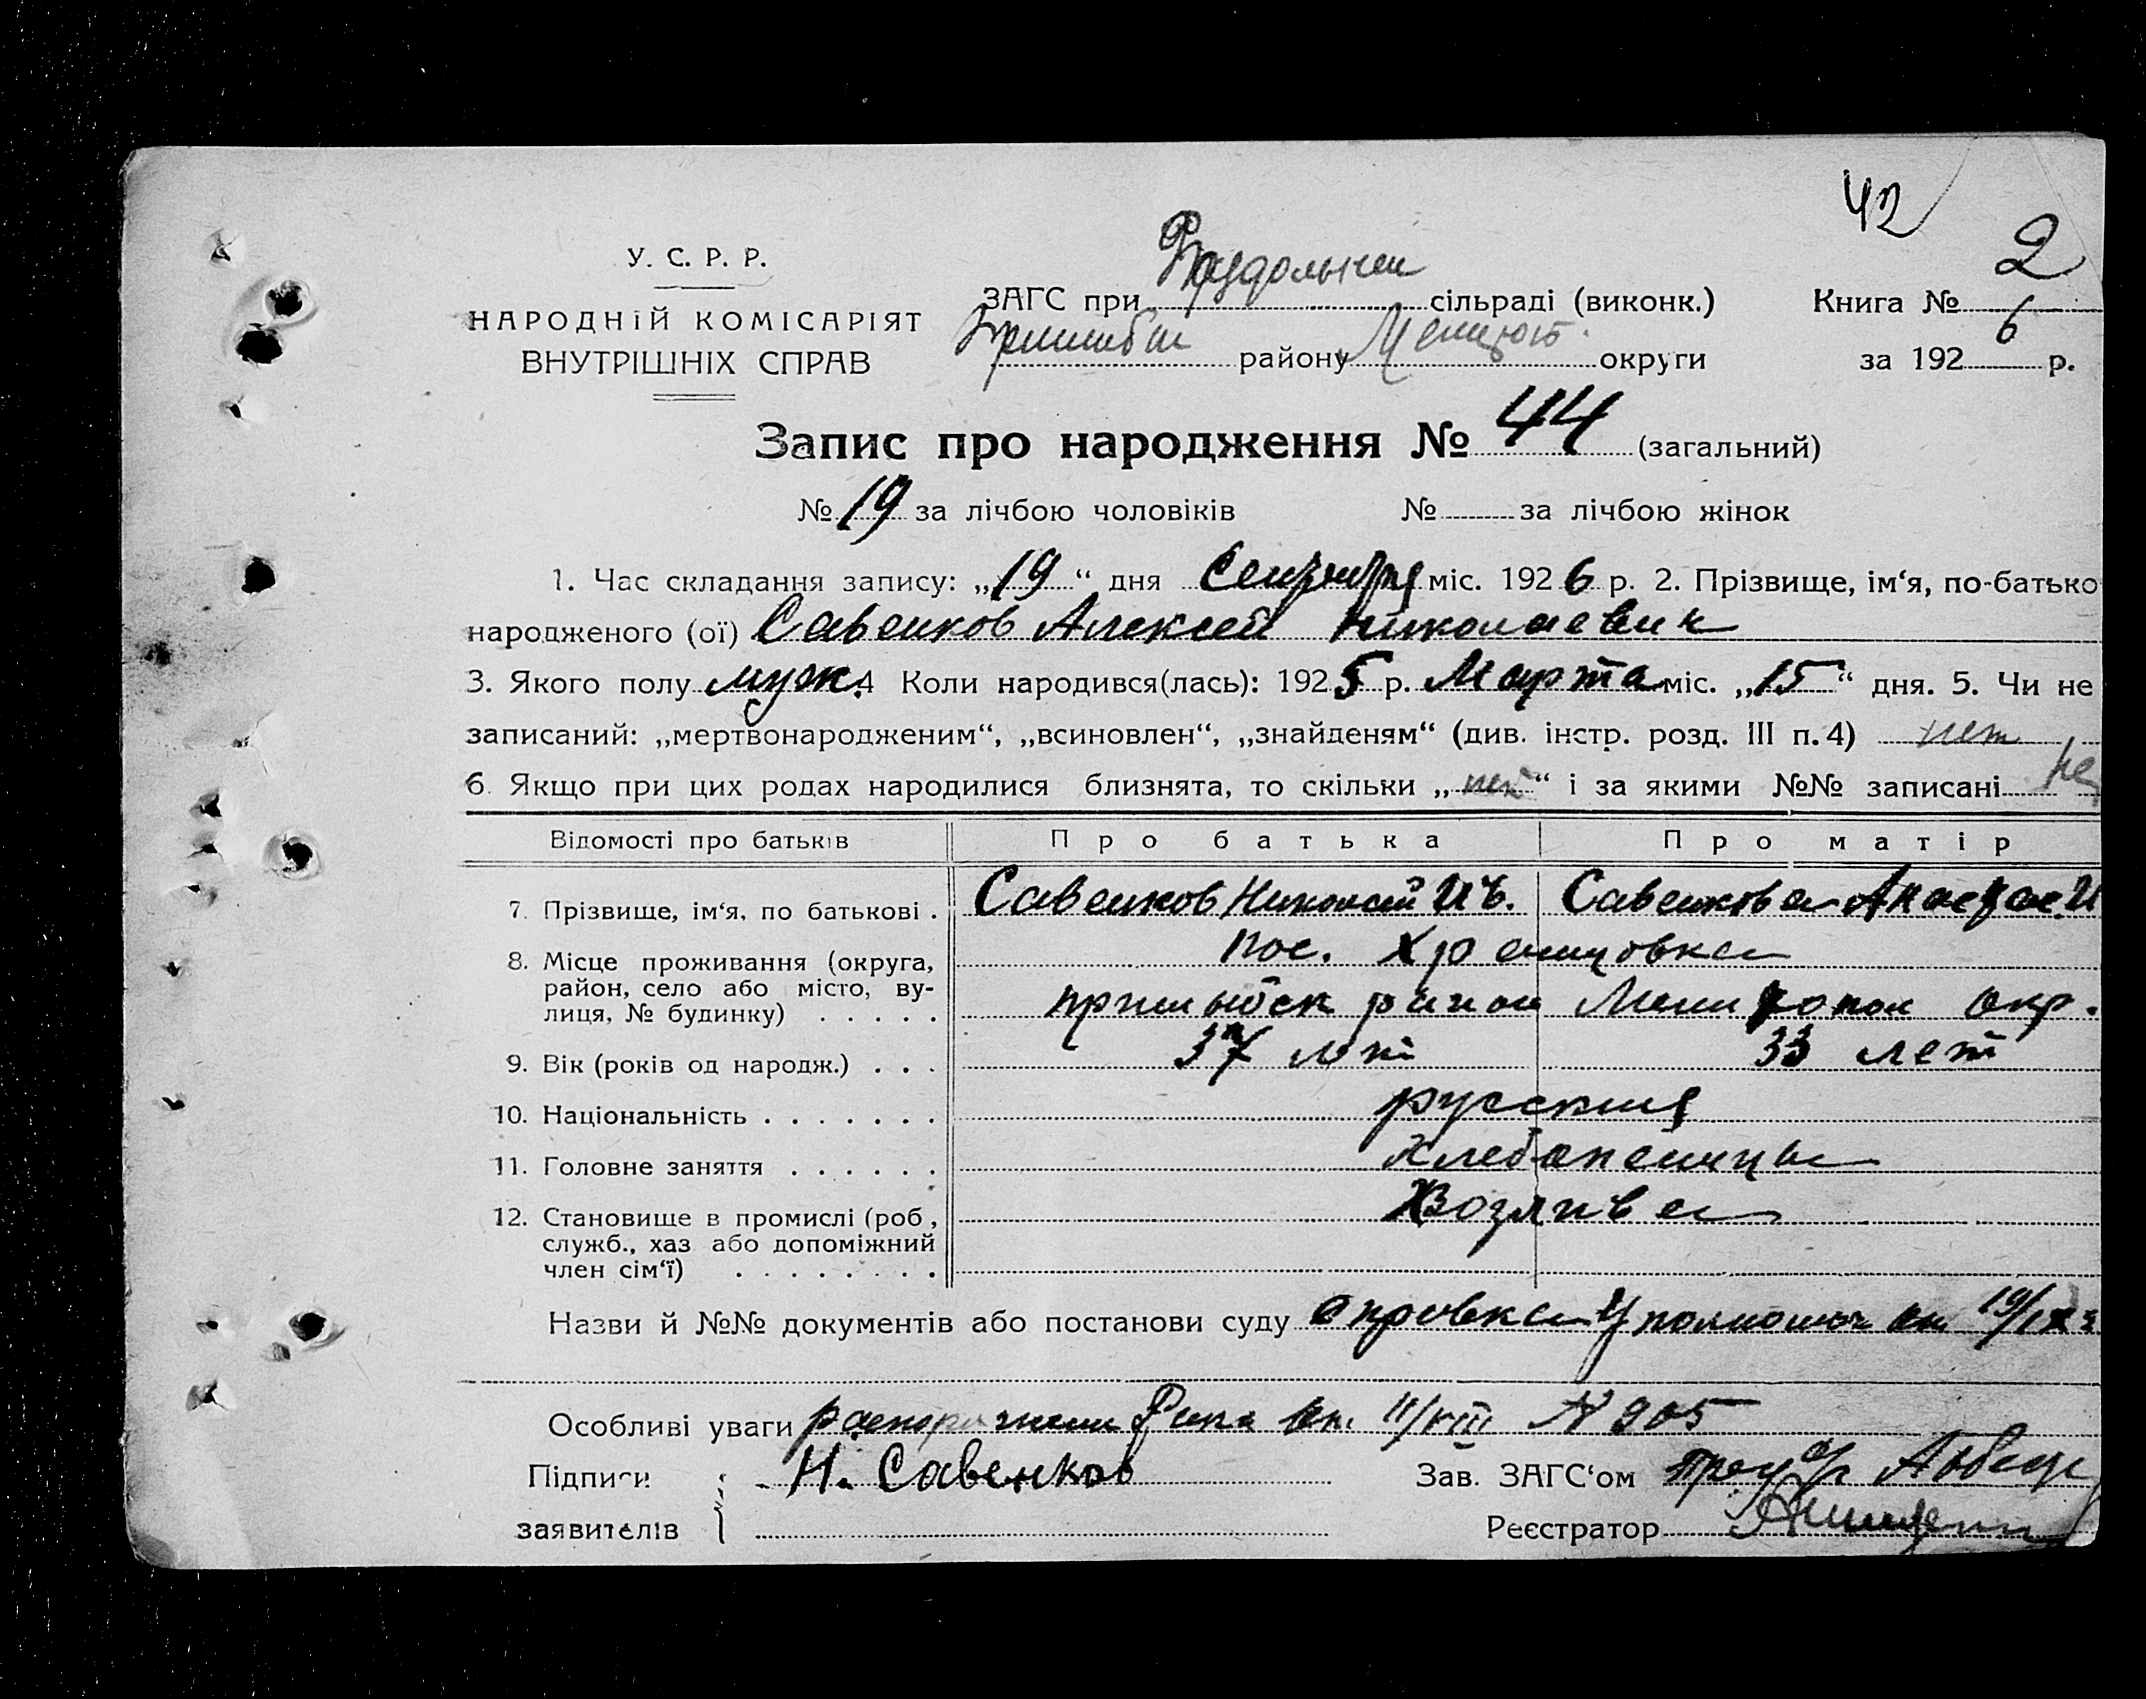 42
2
У. С. Р. Р.
НАРОДНІЙ КОМІСАРІЯТ
ВНУТРІШНІХ СПРАВ
ЗАГС при сільраді (виконк.)
Книга №
району округи
за 1926 р.
Запис про народження № 44 (загальний)
№ 19 за лічбою чоловіків № за лічбою жінок
1. Час складання запису: „19“ дня Сентября міс. 1926 р. 2. Прізвище, ім‘я, по-батько
народженого (ої) Савенков Алексей Николаевич
3. Якого полу муж. 4 Коли народився(лась): 1925 р. Марта міс. „15“ дня. 5. Чи не
записаний: „мертвонародженим“, „всиновлен“, „знайденям“ (див. інстр. розд. III п. 4) нет
6. Якщо при цих родах народилися близнята, то скільки „нет“ і за якими №№ записані не
Відомості про батьків Про батька Про матір
7. Прізвище, ім‘я, по батькові . Савенков Николай Ив. Савенкова Анастас. И
8. Місце проживання (округа, пос.
район, село або місто, ву-
лиця, № будинку) . . . . . район Мелитопол окр.
9. Вік (років од народж.) . . . 37 лет 33 лет
10. Національність . . . . . . . русския
11. Головне заняття . . . . . . Хлебопешцы
12. Становище в промислі (роб.,
служб., хаз або допоміжний
член сім‘ї) . . . . . . . .
Назви й №№ документів або постанови суду от 19/IX
Особливі уваги Рика от 11/VIII № 905
Підписи Н. Савенков Зав. ЗАГС‘ом
заявителів Реєстратор